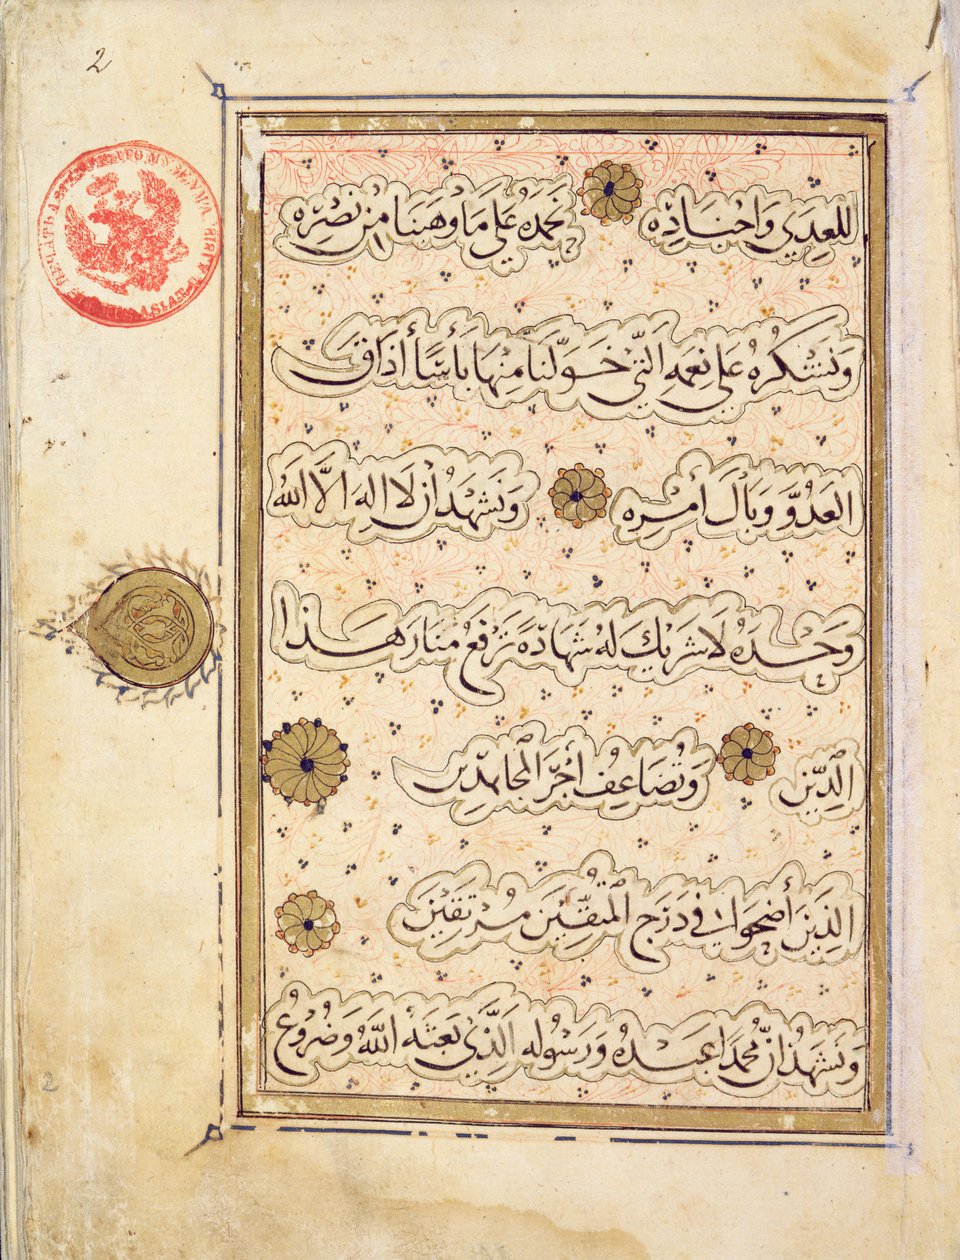 2
للعدي واجناده نحمده على ما وهبنا من نصره
ونشكره على نعمه التي خولنا منها بأسا أذاق
العدو وبال أمره ونشهد أن لا اله الا الله
وحده لا شريك له شهادة ترفع منار هذا
الدين وتضاعف أجر المجاهدين
الذين أضحوا في درج المتقين مرتقين
ونشهد ان محمدا عبده ورسوله الذي بعثه الله وضروع
2